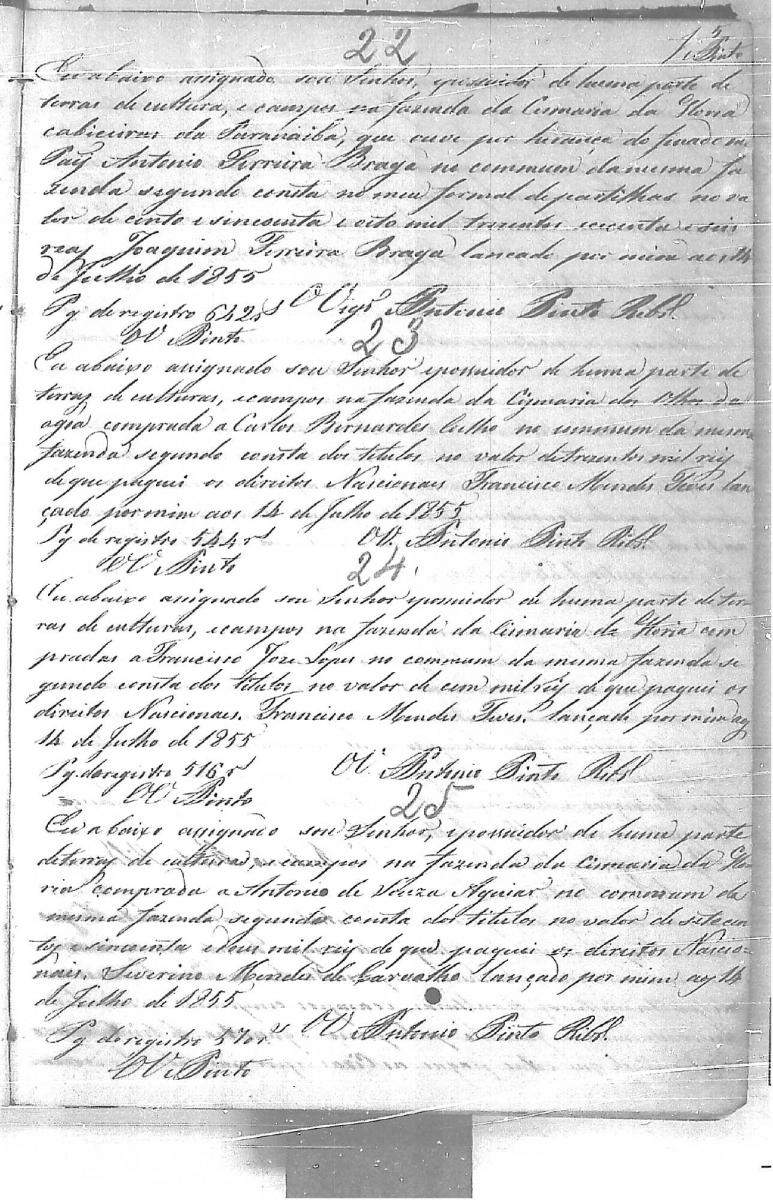 22
5
Pinto
Eu abaixo assignado sou Senhor, epossuidor de huma parte de
terras de cultura, e campos na fazenda da Cismaria da Gloria
cabiceiras da Paranaiba, que ouve por herança do finado meu
Pay Antonio Ferreira Braga no commum da mesma fa
zenda segundo consta no meu formal departilhas no va
lor de cento e sincoenta e oito mil trezentos cecenta e seis
reas Joaquim Ferreira Braga lancado por mim aos 14
de Julho de 1855
Pg de registro 642 rs O Vigrº Antonio Pinto Ribrº
O V Pinto
23
Eu abaixo assignado sou Senhor epossuidor de huma parte de
terras de culturas, ecampos na fazenda da Cismaria dos Olhos da
agoa comprada a Carlos Bernardes Coelho no commum da mesma
fazenda segundo consta dos titulos no valor detrezentos mil reis
de que paguei os direitos Nascionaes Francisco Mendes Teves lan
çado por mim aos 14 de Julho de 1855
Pg de registro 544 rs O V. Antonio Pinto Ribrº
O V Pinto
24
Eu abaixo assignado sou Senhor epossuidor de huma parte de ter
ras de culturas, ecampos na fazenda da Cismaria da Gloria com
pradas a Francisco Joze Lopes no commum da mesma fazenda se
gundo consta dos titulos no valor de cem mil reis de que paguei os
direitos Nascionaes. Francisco Mendes Teves. lançado por mim aos
14 de Julho de 1855
Pg. de registro 516 rs O V. Antonio Pinto Ribrº
O V Pinto
25
Eu abaixo assignado sou Senhor, epossuidor de huma parte
deterras de culturas, ecampos na fazenda da Cismaria da Glo
ria comprada a Antonio de Souza Aguiar no commum da
mesma fazenda segundo consta dos titulos no valor de setecen
tos e sincoenta edous mil reis de que paguei os direitos Nascio
nais. Severino Mendes de Carvalho lançado por mim aos 14
de Julho de 1855
Pg de registro 570 rs O V. Antonio Pinto Ribrº
O V Pinto